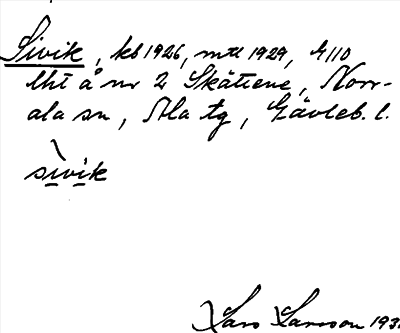 Sivik, kb 1926, mtl 1929, 4110
lht å nr 2 Skätiene, Norr-
ala sn, Ala tg, Gävleb. l.
sìvik
Lars Larsson 193